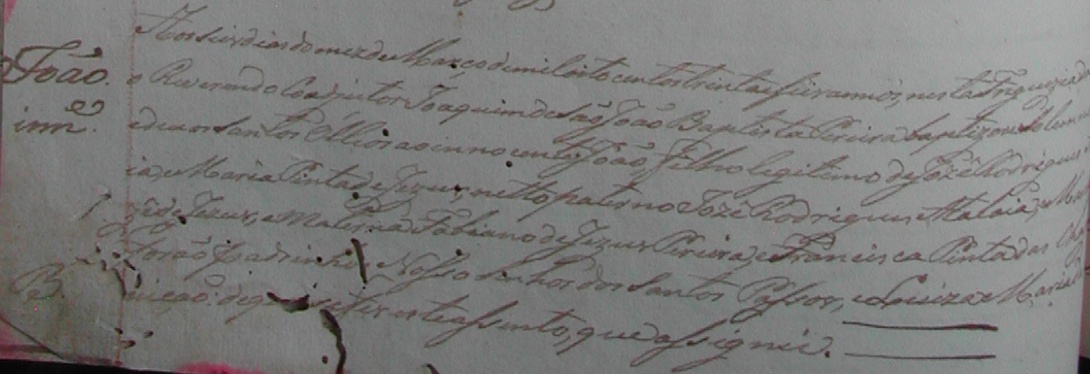 Aos seis dias do mez de Março de mil oito centos trinta e seis annos, nesta Freguezia
João. o Reverendo Coadjutor Joaquim de São João Baptista Pereira baptizou Solemn
inn.e e deu os Santos Olhios ao innocente João, filho legitimo de Jozé Rodrigues
ia, e Maria Pinta de Jezus, netto paterno Jozé Rodrigues Atalaia, e Ma
de Jezus, e Materna Fabiano de Jezus Pereira, e Francisca Pinta das
forão Padrinhos Nosso Senhor dos Santos Passos, e Luiza Maria
B. nição: de que fiz este assento, que assignei.